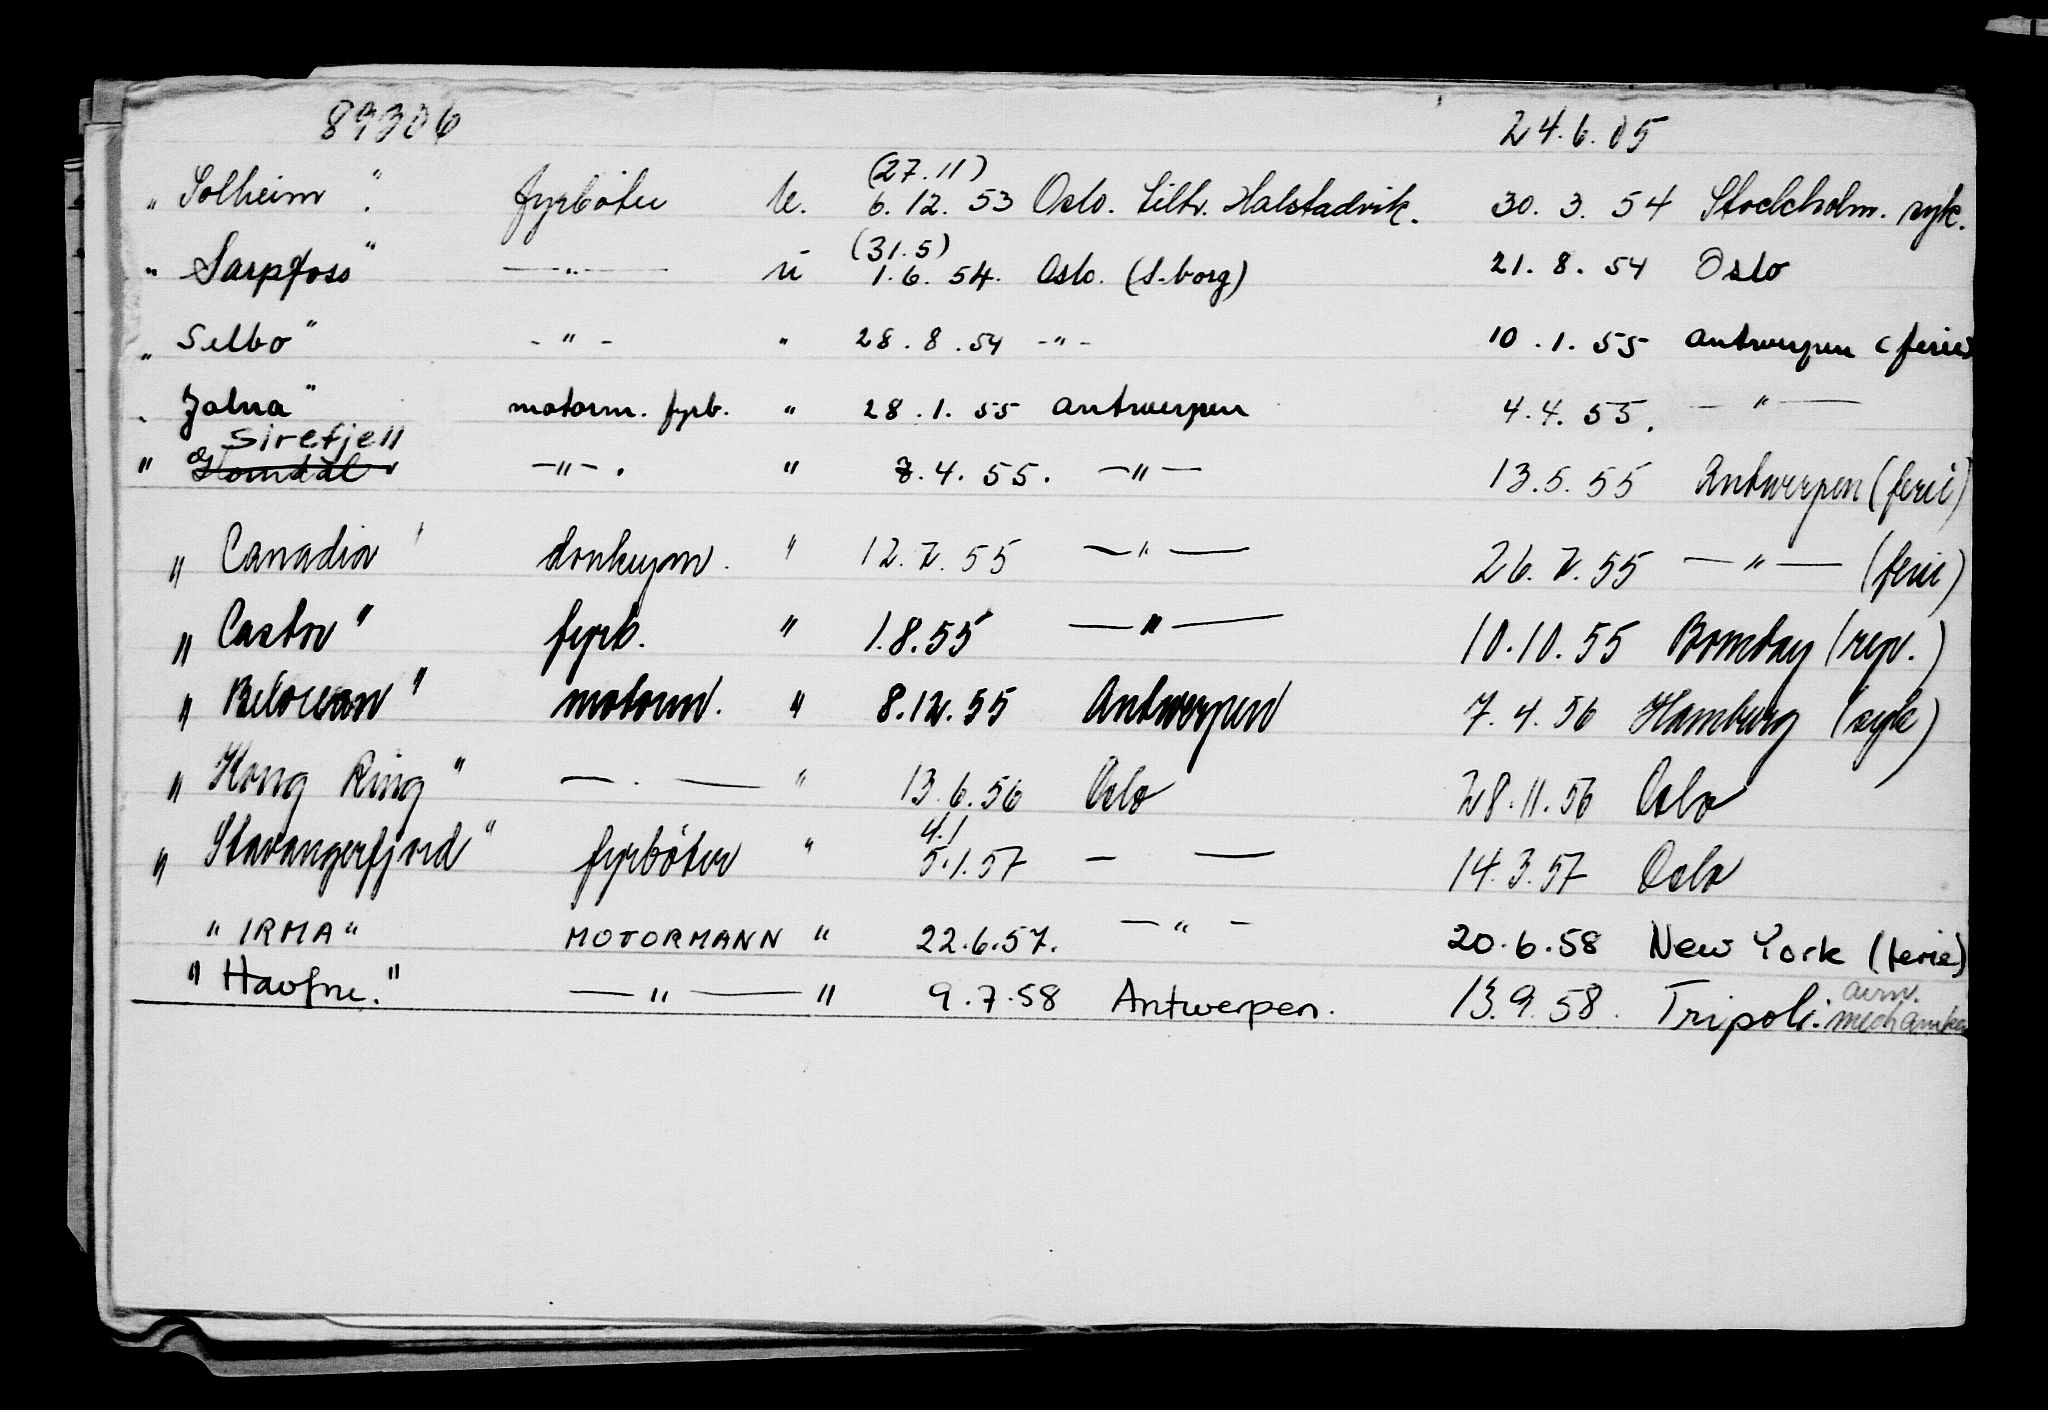 89306 24.6.05
(27.11)
„ Solheim " fyrbøter u. 6.12.53 Oslo. tiltr. Halstadvik. 30.3.54 Stockholm. syk.
(31.5)
" Sarpfoss" —"— u 1.6.54. Oslo. (S.borg) 21.8.54 Oslo
„ Selbo" -"- " 28.8.54 -"- 10.1.55 Antwerpen (ferie)
Jalna" motorm. fyrb. " 28.1.55 Antwerpen 4.4.55. —"—
Sirefjell
" Glomdal —"—. " 7.4.55. —"— 13.5.55 Antwerpen (ferie)
„ Canadia ' donkeym. " 12.7.55 —"— 26.7.55 —"— (ferie)
„ Castor" fyrb. " 1.8.55 —"— 10.10.55 Bombay (rep.)
„ Belocean" motorm. " 8.12.55 Antwerpen 7.4.56 Hamburg (syk)
„ Kong Ring" — . — " 13.6.56 Oslo 28.11.56 Oslo
4.1
„ Stavangerfjord" fyrbøter " 5.1.57 — — 14.3.57 Oslo
" IRMA" MOTORMANN " 22.6.57. —"— 20.6.58 New York (ferie)
" Havfru." —"— " 9.7.58 Antwerpen. 13.9.58. Tripoli.